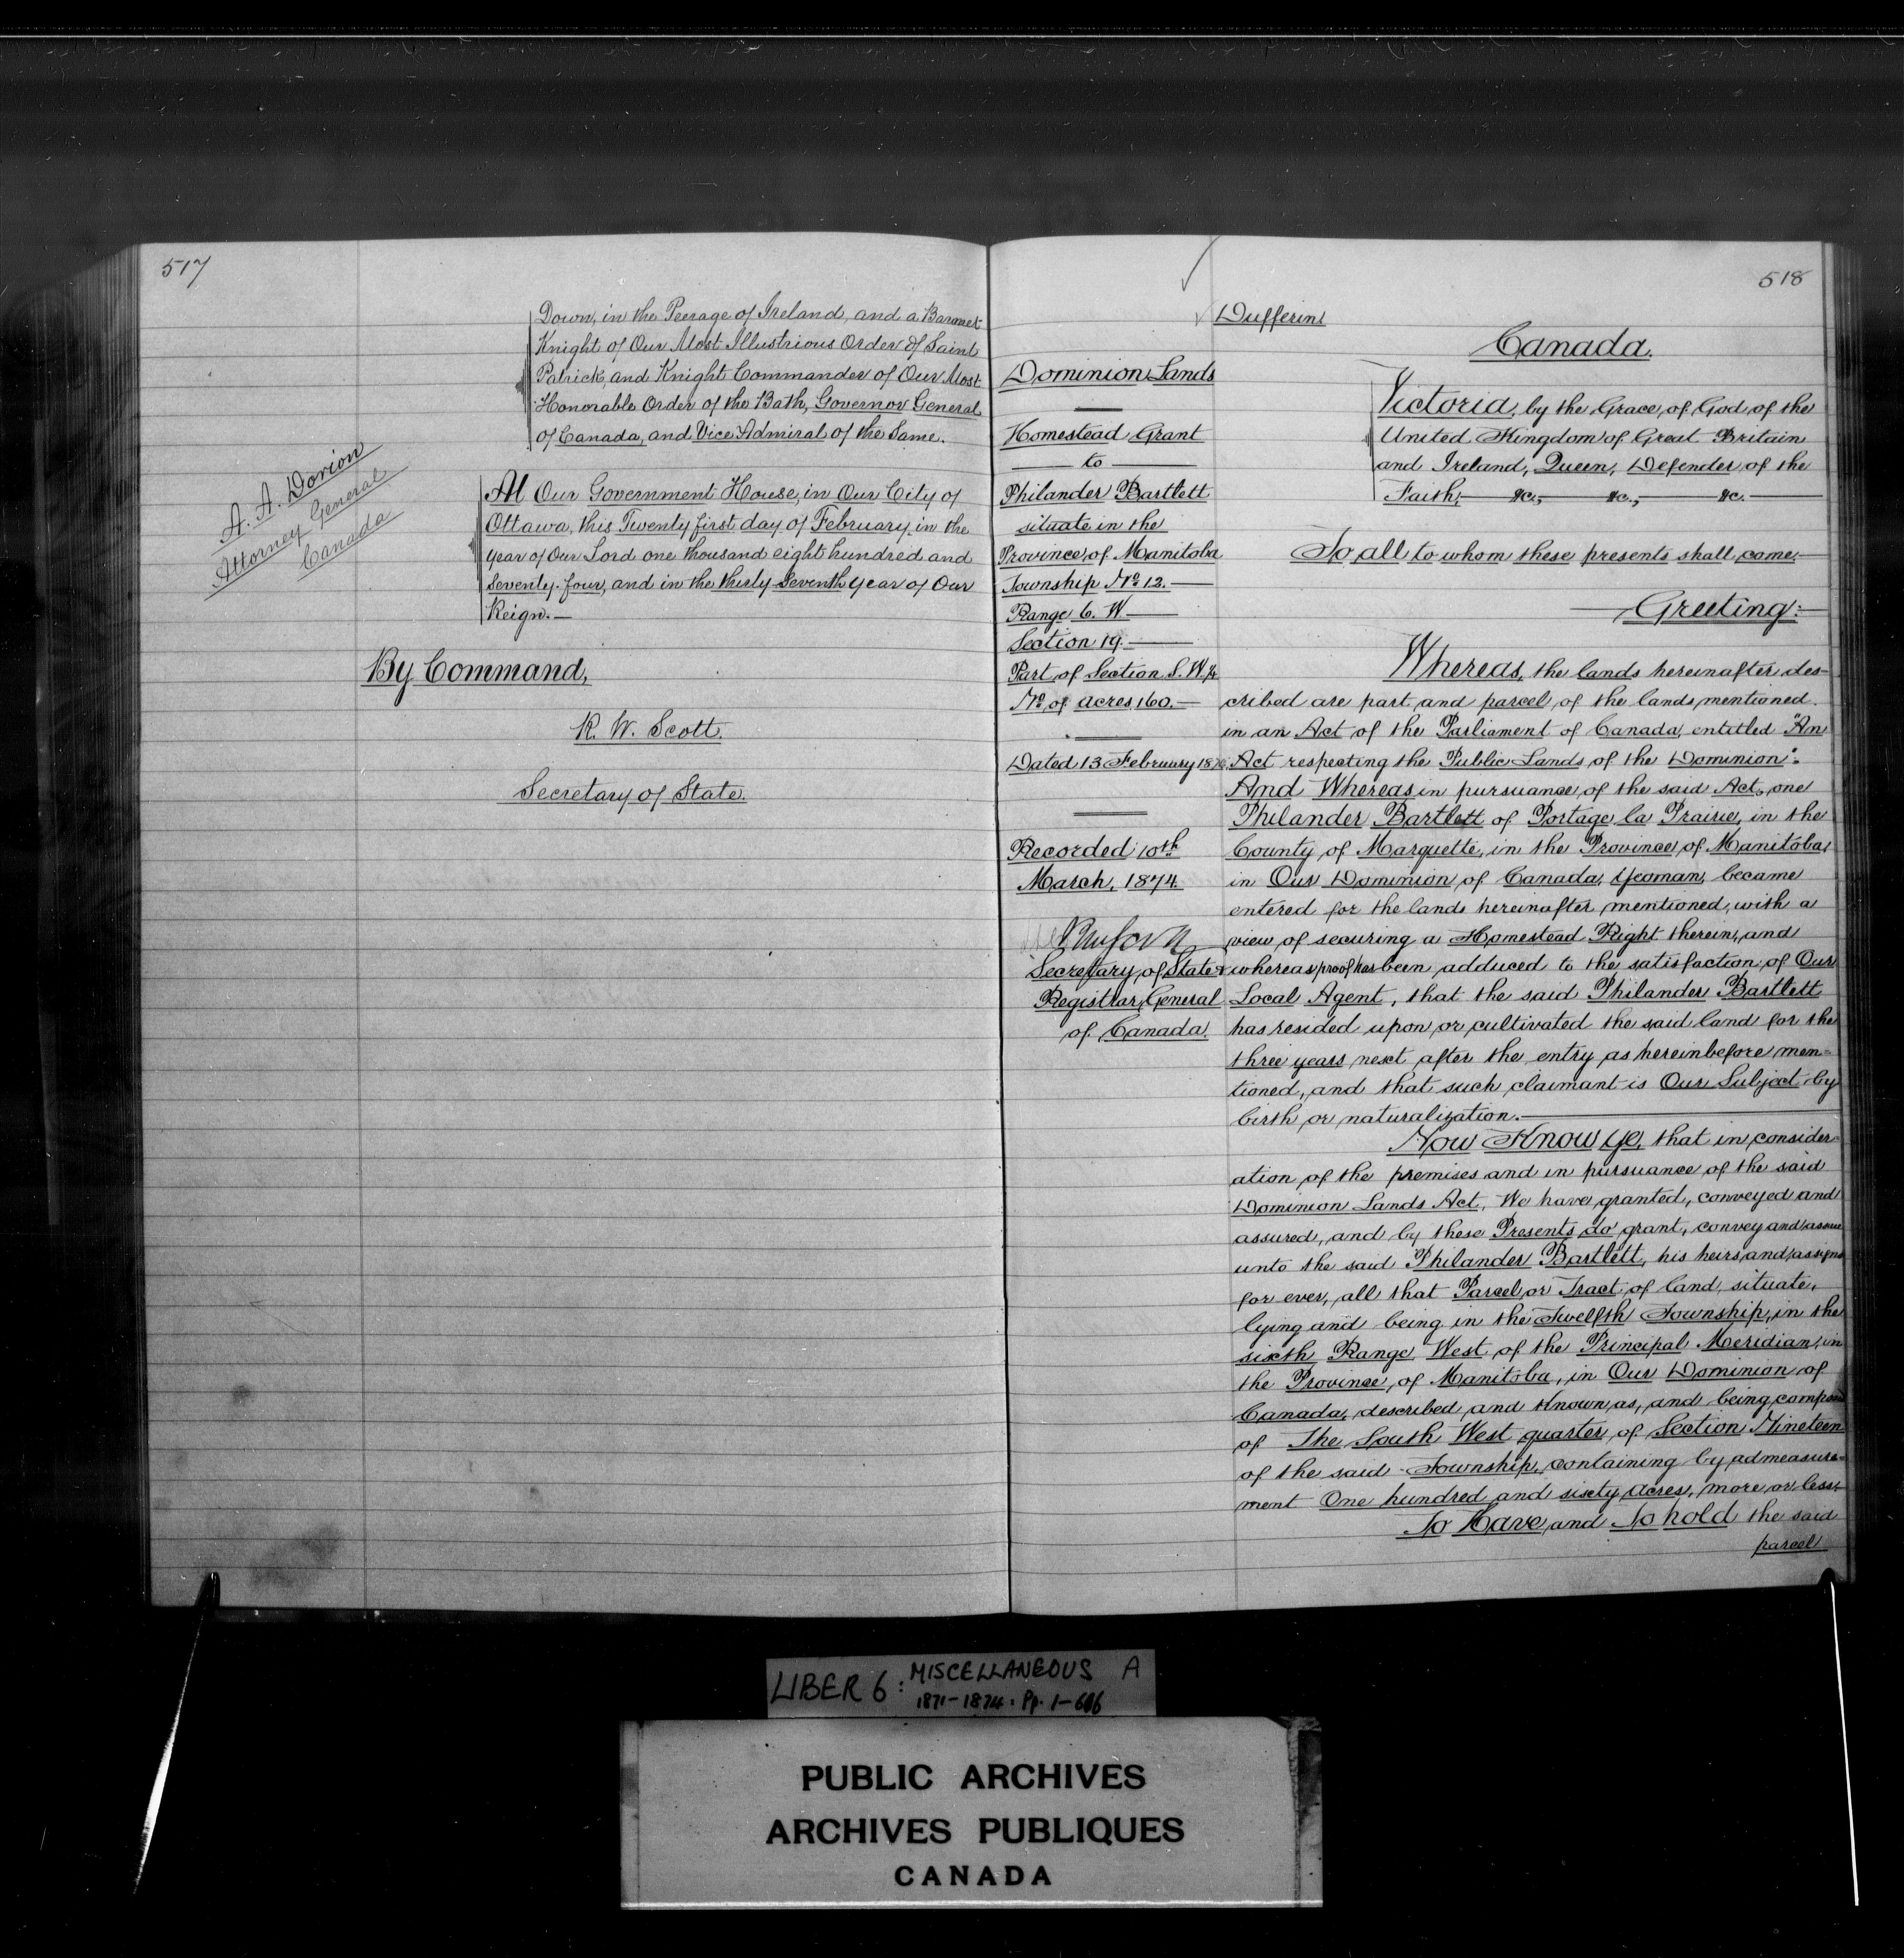 517
Down, in the Peerage of Ireland, and a Baronet
Knight of Our Most Illustrious Order of Saint
Patrick, and Knight Commander of Our Most
Honorable Order of the Bath, Governor General
of Canada, and Vice Admiral of the Same.
A. A. Dorion
Attorney General
Canada
At Our Government House, in Our City of
Ottawa, this Twenty first day of February, in the
year of Our Lord one thousand eight hundred and
Seventy-four, and in the thirty Seventh year of Our
Reign.—
By Command,
R. W. Scott.
Secretary of State.
518
Dufferin
Dominion Lands
Homestead Grant
to
Philander Bartlett
situate in the
Province of Manitoba
Township No. 12.
Range 6. W
Section 19.
Part of Section S. W. ¼
No. of acres, 160.
Dated 13 February 1874
Recorded 10th
March, 1874.
Secretary of State &
Registrar General
of Canada.
Canada.
Victoria, by the Grace of God, of the
United Kingdom of Great Britain
and Ireland, Queen, Defender of the
Faith, &c., &c., &c.
To all to whom these presents shall come,
Greeting:
Whereas, the lands hereinafter des-
cribed are part and parcel of the lands mentioned
in an Act of the Parliament of Canada, entitled "An
Act respecting the Public Lands of the Dominion":
And Whereas in pursuance of the said Act, one
Philander Bartlett of Portage la Prairie, in the
County of Marquette, in the Province of Manitoba,
in Our Dominion of Canada, Yeoman, became
entered for the lands hereinafter mentioned, with a
view of securing a Homestead Right therein, and
whereas proof has been adduced to the satisfaction of Our
Local Agent, that the said Philander Bartlett
has resided upon or cultivated the said land for the
three years next after the entry as hereinbefore men-
tioned, and that such claimant is Our Subject by
birth or naturalization.
Now Know Ye, that in consider-
ation of the premises and in pursuance of the said
Dominion Lands Act, We have granted, conveyed and
assured, and by these Presents do grant, convey and assure
unto the said Philander Bartlett, his heirs and assigns
for ever, all that Parcel or Tract of land, situate,
lying and being in the Twelfth Township, in the
sixth Range West of the Principal Meridian, in
the Province of Manitoba, in Our Dominion of
Canada, described and known as, and being composed
of The South West quarter of Section Nineteen
of the said Township, containing by admeasure-
ment One hundred and sixty acres, more or less,
To Have and To hold the said
parcel
LIBER 6: MISCELLANEOUS A
1871-1874: Pp. 1-606
PUBLIC ARCHIVES
ARCHIVES PUBLIQUES
CANADA